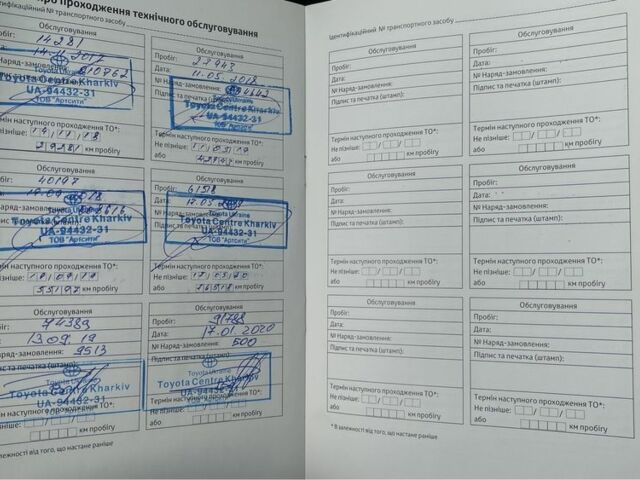 про проходження технічного обслуговування
Ідентифікаційний № транспортного засобу
Обслуговування
14281
14.11.2017
Наряд-замовлення:
010762
Toyota Centre Kharkiv
UA-94432-31
ТОВ "Артсіті"
Термін наступного проходження ТО*:
29281 км пробігу
Обслуговування
Пробіг: 27743
Дата: 11.05.2018
№ Наряд-замовлення:
Підпис та печатка (штамп):
Toyota Ukraine
Toyota Centre Kharkiv
UA-94432-31
ТОВ "Артсіті"
Термін наступного проходження ТО*:
Не пізніше: 11/05/19
або км пробігу
Обслуговування
40197
Toyota Ukraine
Toyota Centre Kharkiv
UA-94432-31
ТОВ "Артсіті"
Термін наступного проходження ТО*:
55197 км пробігу
Обслуговування
Пробіг: 61518
Дата:
№ Наряд-замовлення:
Підпис та печатка
Toyota Ukraine
Toyota Centre Kharkiv
UA-94432-31
ТОВ "Артсіті"
Термін наступного проходження ТО*:
Не пізніше:
або 76518 км пробігу
Обслуговування
74389
13.09.19
Наряд-замовлення:
9513
Toyota Ukraine
Toyota Centre Kharkiv
UA-94432-31
Термін наступного проходження ТО*:
км пробігу
Обслуговування
Пробіг: 91788
Дата: 17.01.2020
№ Наряд-замовлення: 500
Підпис та печатка (штамп):
Toyota Ukraine
Toyota Centre Kharkiv
UA-94432-31
Термін наступного проходження ТО*:
Не пізніше:
або км пробігу
залежності від того, що настане раніше
Ідентифікаційний № транспортного засобу
Обслуговування
Пробіг:
Дата:
№ Наряд-замовлення:
Підпис та печатка (штамп):
Термін наступного проходження ТО*:
Не пізніше:
або км пробігу
Обслуговування
Пробіг:
Дата:
№ Наряд-замовлення:
Підпис та печатка (штамп):
Термін наступного проходження ТО*:
Не пізніше:
або км пробігу
Обслуговування
Пробіг:
Дата:
№ Наряд-замовлення:
Підпис та печатка (штамп):
Термін наступного проходження ТО*:
Не пізніше:
або км пробігу
Обслуговування
Пробіг:
Дата:
№ Наряд-замовлення:
Підпис та печатка (штамп):
Термін наступного проходження ТО*:
Не пізніше:
або км пробігу
Обслуговування
Пробіг:
Дата:
№ Наряд-замовлення:
Підпис та печатка (штамп):
Термін наступного проходження ТО*:
Не пізніше:
або км пробігу
Обслуговування
Пробіг:
Дата:
№ Наряд-замовлення:
Підпис та печатка (штамп):
Термін наступного проходження ТО*:
Не пізніше:
або км пробігу
* В залежності від того, що настане раніше